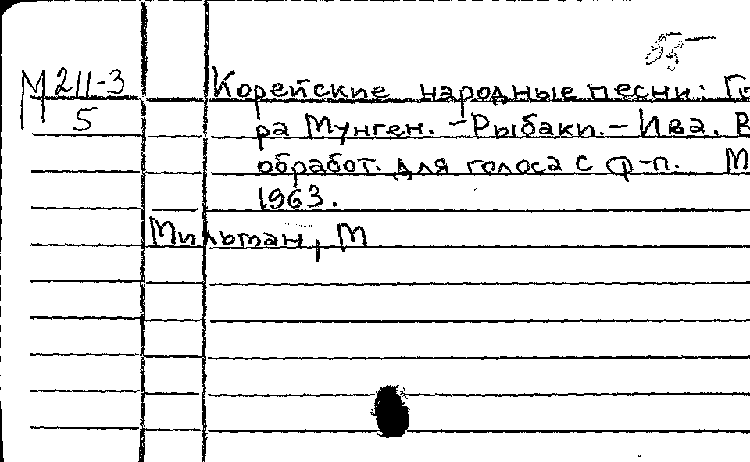 55
М 211-3 Корейские народные песни: Го
5
ра Мунген. - Рыбаки. - Ива. В
обработ. для голоса с ф-п. М
1963.
Мильман, М